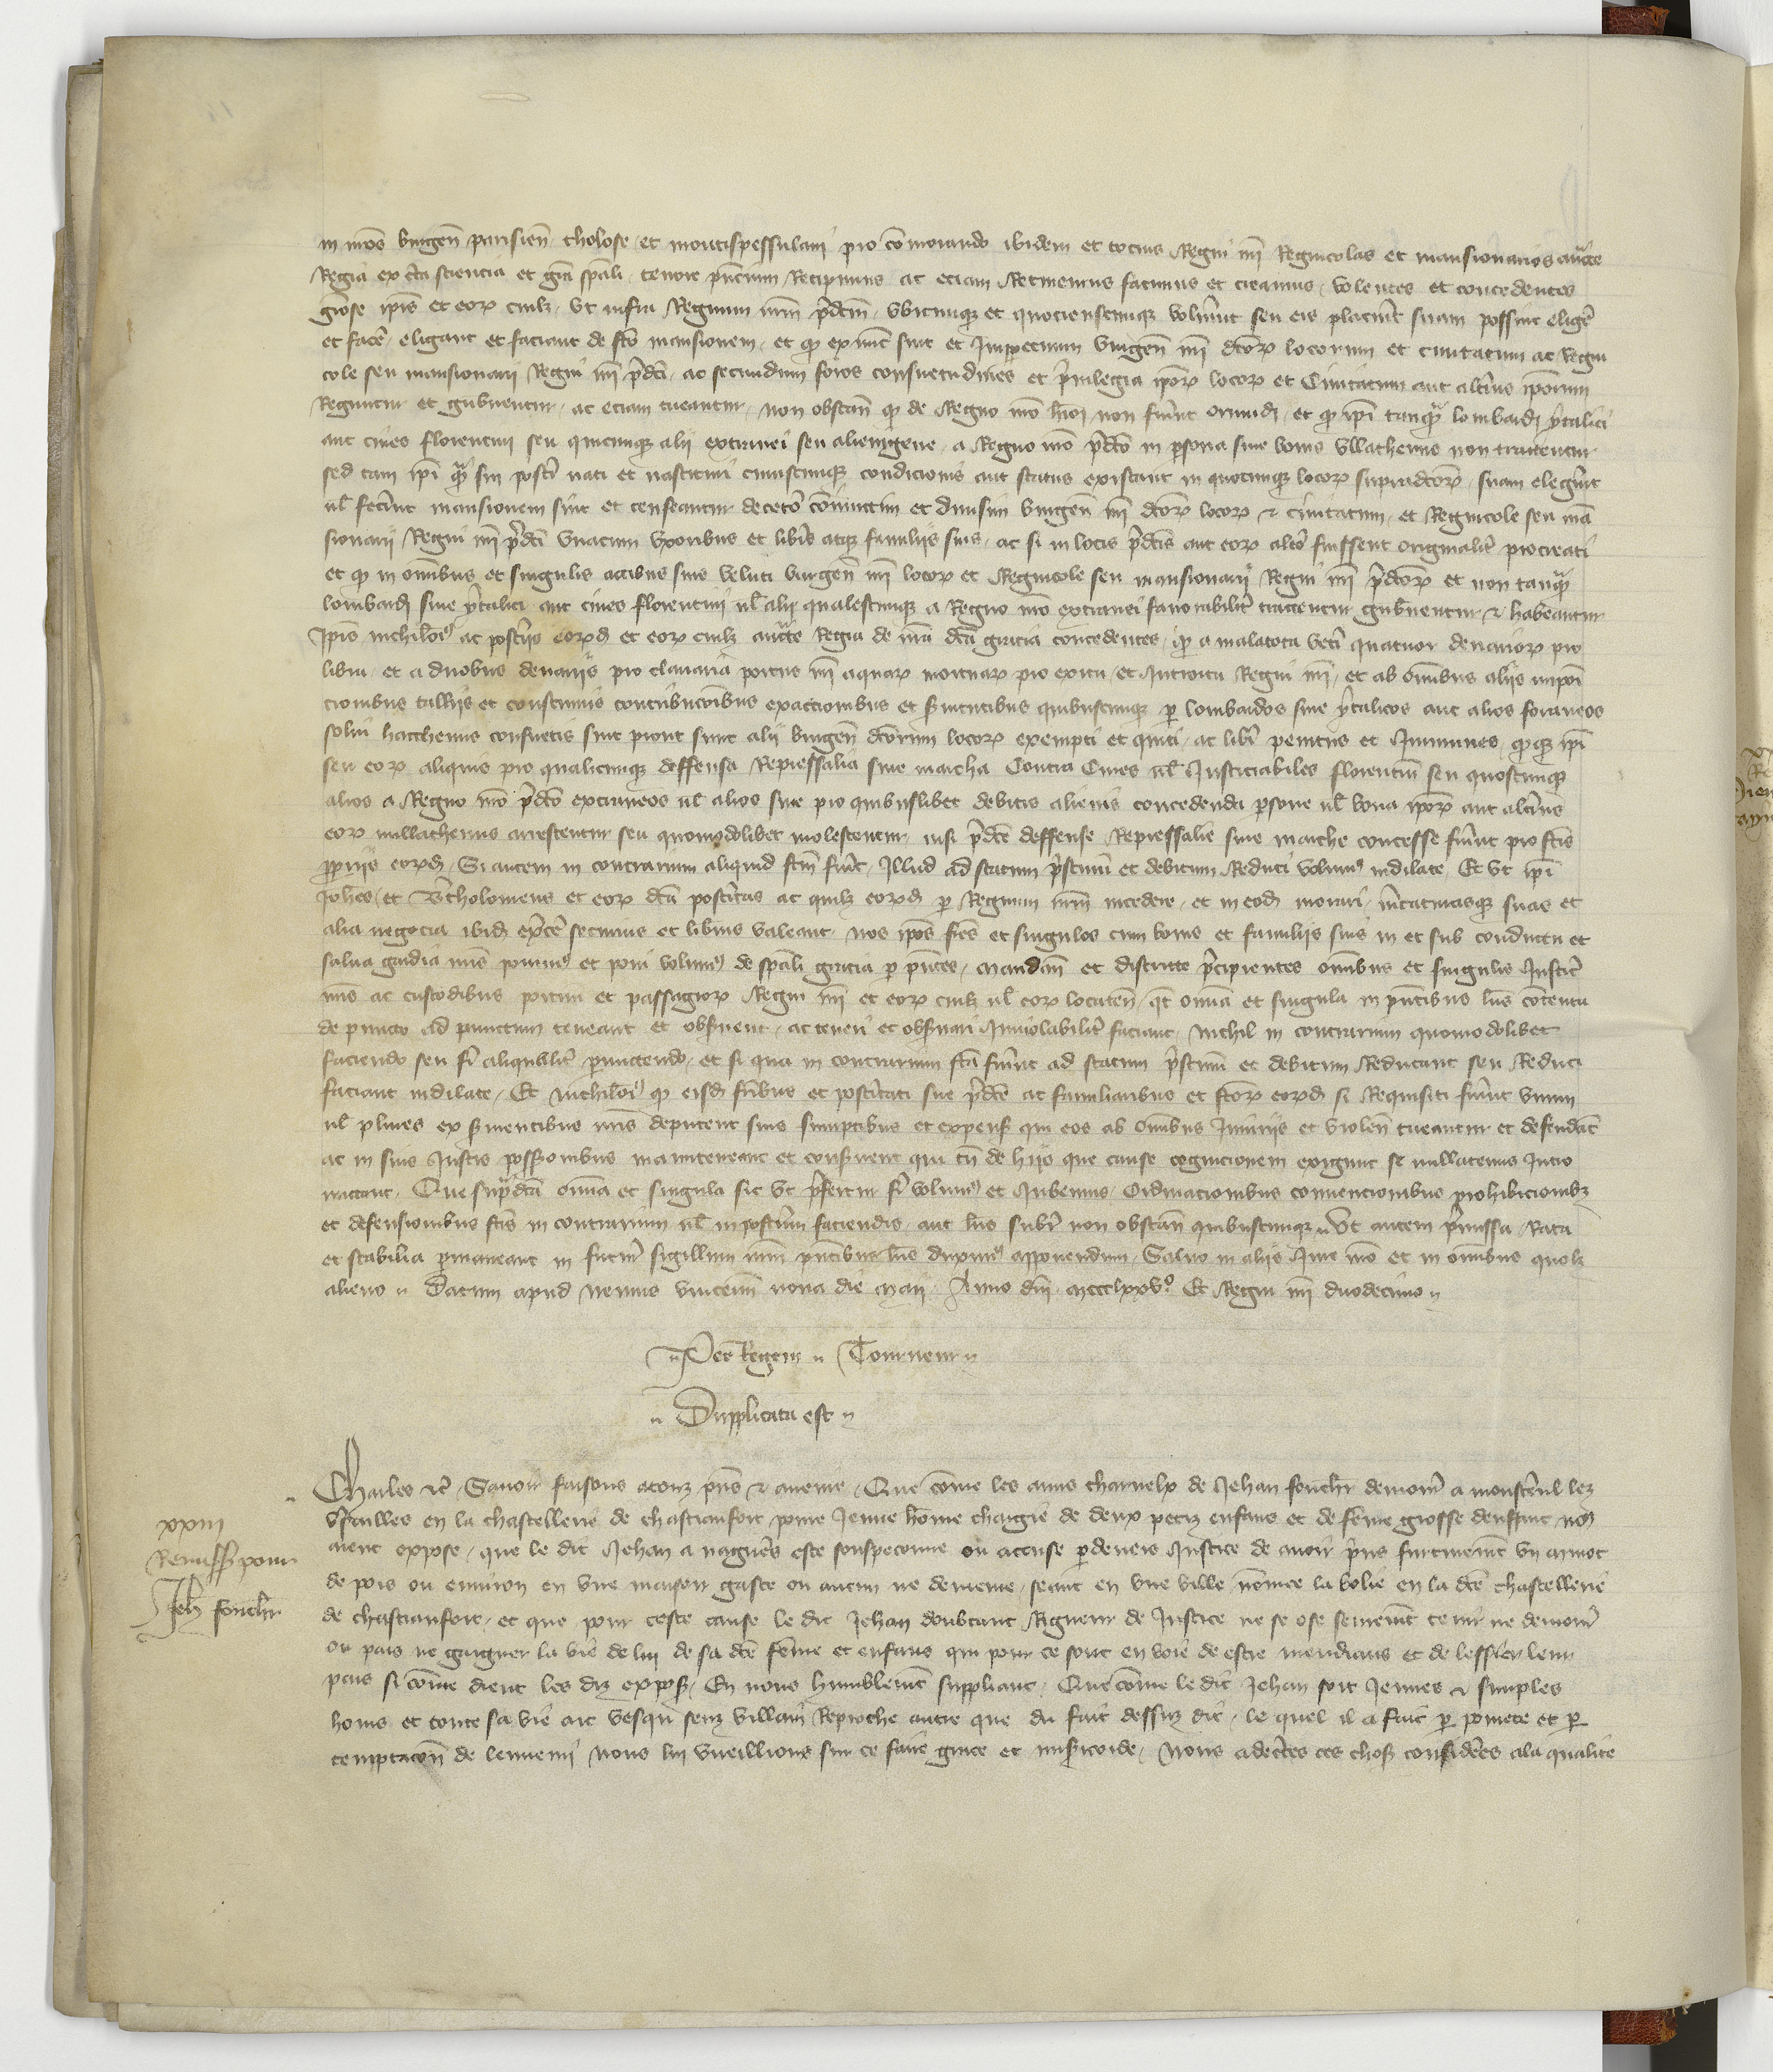 in nr̃os burgen̄ parisien̄ tholose et montispessulani pro cōmorando ibidem et tocius Regni nr̃i Regnicolas et mansionarios auctẽ
Regia ex cẽta sciencia et gr̃a spāli tenore pñcium Recipimus ac eciam Retinemus facimus et creamus, volentes et concedentes
gr̃ose ip̃is et eorꝫ cuilꝫ, vt infra Regnum nr̃m p̃dc̃m, vbicunqꝫ et quocienscunqꝫ voluĩnt seu eis placuĩt suam possint elige᷑
et face᷑, eligant et faciant de fc̃o mansionem, et qꝫ ex nũc sint et Imppetuum burgen̄ nr̃i dc̃orꝫ locorum et ciuitatum ac Regni
cole seu mansionarii Regni nr̃i p̃dc̃i, ac secundum foros consuetudines et p̃uilegia ip̃orꝫ locorꝫ et Ciuitatum aut alte᷑ius ip̃orum
Regantur et gubnentur, ac eciam tueantur, non obstan̄ qꝫ de Regno nr̃o hm̃oi non fue᷑int oriundi, et qꝫ ip̃i tanqꝫ lombardi ytalici
aut ciues florentini seu quicunqꝫ alii extranei seu alienigene, a Regno nr̃o p̃dc̃o in psona siue bonis vllathenus non tractentur
sed tam ip̃i qꝫ sui poste᷑i nati et nascituri cuiuscunqꝫ condicionis aut status existant in quocunqꝫ locorꝫ supradc̃orꝫ, suam elege᷑int
ul̃ fece᷑int mansionem sint et censeantur decete᷑o cōiunctim et diuisim burgen̄ nr̃i dc̃orꝫ locorꝫ & ciuitatum, et Regnicole seu man
sionarii Regni nr̃i p̃dc̃i vnacum vxoribus et libe᷑is atqꝫ familiis suis, ac si in locis p̃dc̃is aut eorꝫ alte᷑o fuissent originalite᷑ procreati
et qꝫ in om̃ibus et singulis actibus suis veluti burgen̄ nr̃i locorꝫ et Regnicole seu mansionarii Regni nr̃i p̃dc̃orꝫ et non tanqꝫ
lombardi siue ytalici aut ciues florentini ul̃ alii qualescunqꝫ a Regno nr̃o extranei fauorabilite᷑ tractentur gubnentur & habeantur
Ip̃is nichilõiꝰ ac poste᷑is eorꝫd et eorꝫ cuilꝫ auctẽ Regia de nr̃a dc̃a gracia concedentes, qꝫ a malatota vete᷑i quatuor denariorꝫ pro
libra, et a duobus denariis pro clauaria portus nr̃i aquarꝫ mortuarꝫ pro exitu et Introitu Regni nr̃i, et ab om̃ibus aliis imposi
cionibus talliis et constumis contribuc̃oibus exactionibus et s̃uitutibus quibuscunqꝫ p lombardos siue ytalicos aut alios foraneos
solui hacthenus consuetis sint prout sunt alii burgen̄ dc̃orum locorꝫ exempti et quiti, ac libe᷑i penitus et Immunes, qꝫqꝫ ip̃i
seu eorꝫ aliquis pro qualicunqꝫ deffensa Repressalia siue marcha Contra Ciues ul̃ Iusticiabiles florentin̄ seu quoscunqꝫ
alios a Regno nr̃o p̃dc̃o extraneos ul̃ alios siue pro quibuslibet debitis alienis concedenda psone ul̃ bona ip̃orꝫ aut alte᷑ius
eorꝫ nullathenus arrestentur seu quomodolibet molestentur, nisi p̃dc̃e deffense Repressalie siue marche concesse fue᷑int pro fc̃is
ppriis eorꝫd, Si autem in contrarium aliquid fc̃m fue᷑it, Illud ad statum p̃stinū et debitum Reduci volumꝰ indilate, Et vt ip̃i
Joh̃es et Be᷑tholomeus et eorꝫ dc̃a poste᷑itas ac quilꝫ eorꝫd p Regnum nr̃m incedere, et in eodꝫ morari, me᷑caturasqꝫ suas et
alia negocia ibidꝫ exe᷑cere securius et liberius valeant, nos ip̃os fr̃es et singulos cum bonis et familiis suis in et sub conductu et
salua gardia nr̃is ponimꝰ et poni volumꝰ de spāli gracia p pñtes, Mandan̄ et districte p̃cipientes om̃ibus et singulis Iustic̃
nr̃is ac custodibus portuū et passagiorꝫ Regni nr̃i et eorꝫ cuilꝫ ul̃ eorꝫ locaten̄, qt om̃ia et singula in pñtibus lr̃is cōtenta
de puncto ad punctum teneant et obs̃uent, ac teneri et obs̃uari Inuiolabilite᷑ faciant, nichil in contrarium quomodolibet
faciendo seu fie᷑i aliqualite᷑ pmittendo, et si qua in contrarium fc̃a fue᷑int ad statum p̃stinū et debitum Reducant seu Reduci
faciant indilate, Et nichilõiꝰ qꝫ eisdꝫ fr̃ibus et poste᷑itati sue p̃dc̃e ac familiaribus et fc̃orꝫ eorꝫd si Requisiti fue᷑int vnum
ul̃ plures ex s̃uientibus nr̃is deputent suis sumptibus et expens̃ qui eos ab om̃ibus Iniuriis et violen̄ tueantur et defendãt
ac in suis Iustis possessionibus manuteneant et cons̃uent qui tñ de hiis que cause cognicionem exigunt se nullatenus Intro
mittant, Que sup̃dc̃a om̃ia et singula sic vt p̃fertur fie᷑i volumꝰ et Iubemus, Ordinacionibus conuencionibus prohibicionibꝫ
et defensionibus fc̃is in contrarium ul̃ inposte᷑um faciendis, aut lr̃is subr̃ non obstan̄ quibuscunqꝫ Vt autem p̃missa Rata
et stabilia pmaneant in futur̃ sigillum nr̃m pñtibus lr̃is duximꝰ apponendum, Saluo in aliis Iure nr̃o et in om̃ibus quolꝫ
alieno Datum apud nemus vincenn̄ nona die Maii Anno dñi Mccclxxvº Et Regni nr̃i duodecimo
Per Regem Tourneur
Dupplicata est
Charles &c̃ Sauoir faisons atouz pñs & auenir, Que cōme les amis charnelx de Jehan fouche᷑ demour̃ a monste᷑ul lez
Vsaulles en la chastellerie de chasteaufort, poure Ieune hōme chargie de deux petiz enfans et de fēme grosse denfant, no⁹
aient expose, que le dit Jehan a nague᷑es este souspeconne ou accuse pdeuers Iustice de auoir p̃ns furtiuemēt vn minot
de pois ou enuiron en vne maison gaste ou aucun ne demeure, seant en vne ville nōmee la bolie en la dc̃e chastellerie
de chasteaufort, et que pour ceste cause le dit Jehan doubtant Rigueur de Iustice ne se ose seurem̃t tenir ne demour̃
ou pais ne gaigner la vie de lui de sa dc̃e fēme et enfans qui pour ce sont en voie de estre mendians et de lessier leur
pais si cōme dient les diz exposꝫ, En nous humblem̃t suppliant, Que cōme le dit Jehan soit Ieunes & simples
homs et toute sa vie ait vesqu senz villain Reproche autre que du fait dessuz dit, le quel il a fait p pourete et p
temptac̃on de lennemi nous lui vueillions sur ce faire grace et miscorde, Nous adce᷑tes ces chosꝫ conside᷑ees ala qualite
xxiii
Remissꝫ pour
Jeh̃ fouche᷑